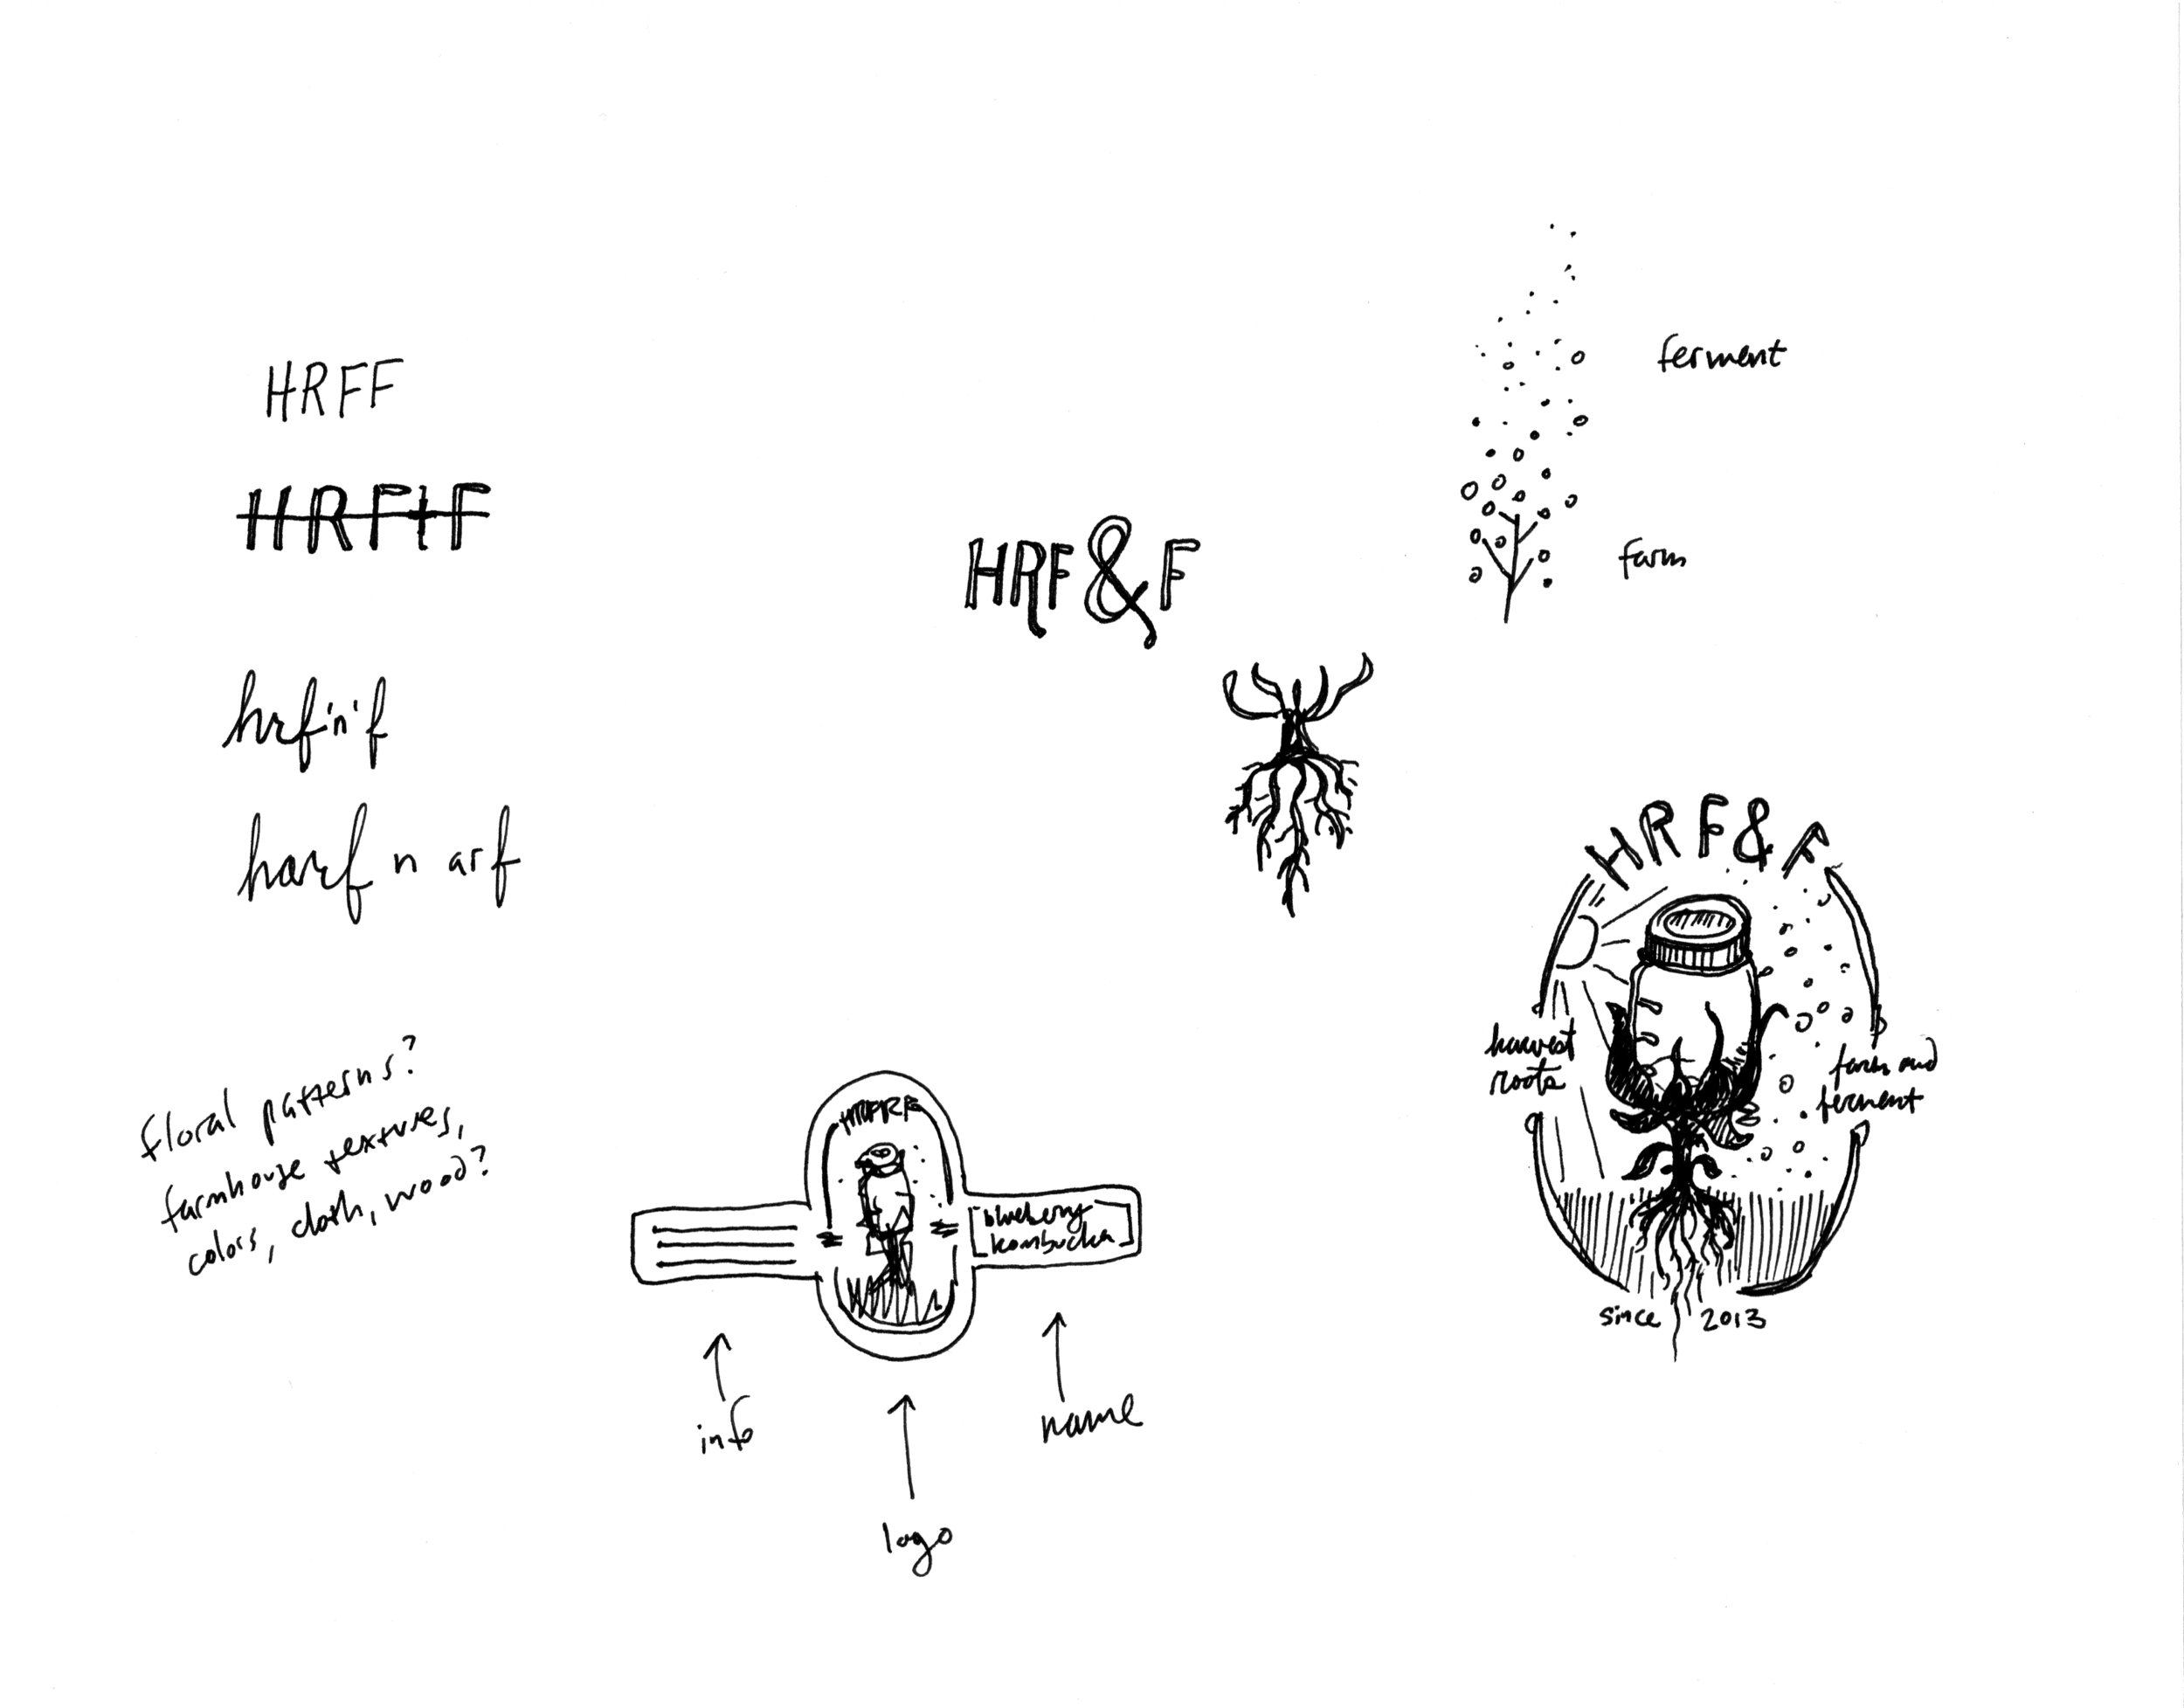 HRFF
HRF+F
hrf'n'f
harf n arf
floral patterns?
farmhouse textures,
colors, cloth, wood?
HRF&F
ferment
farm
blueberry
kombucha
info
logo
name
HRF&F
harvest
roots
farm and
ferment
since 2013